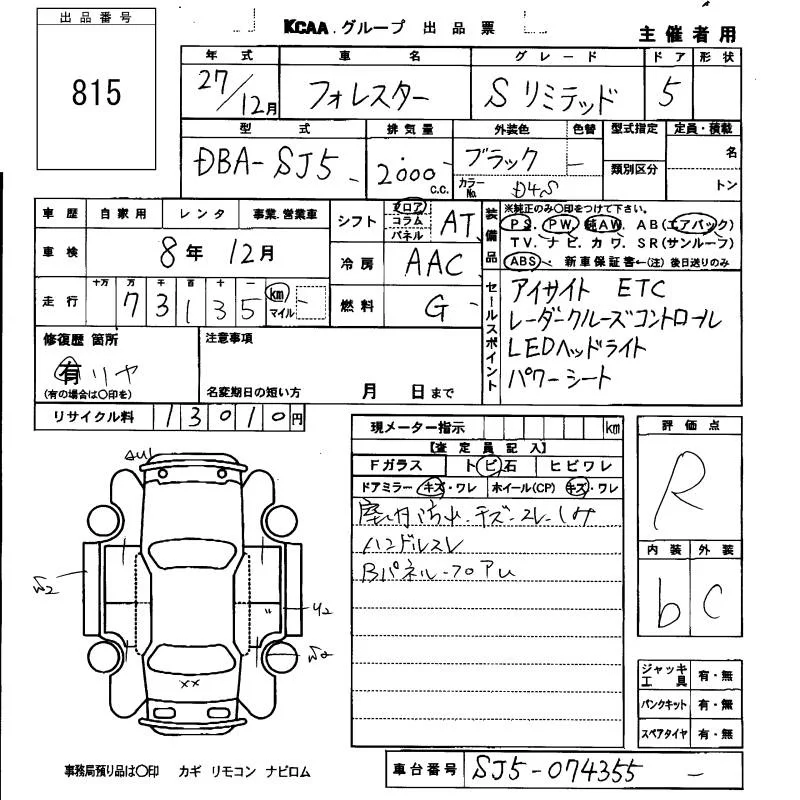 出品番号
815
KCAA グループ 出品票
主催者用
年式 車名 グレード ドア 形状
27/12月 フォレスター Sリミテッド 5
型式 排気量 外装色 色替 型式指定 定員・積載
DBA-SJ5 2000 C.C. ブラック - 類別区分 名
カラーNo. D4S トン
車歴 自家用 レンタ 事業.営業車
車検 8年 12月
走行 十万 万 千 百 十 一 km マイル
73135
シフト フロア コラム パネル AT
冷房 AAC
燃料 G
装備品 ※純正のみ〇印をつけて下さい。
PS. PW. 純AW. AB(エアバック)
TV. ナビ. カワ. SR(サンルーフ)
ABS. 新車保証書←(注)後日送りのみ
セールスポイント
アイサイト ETC
レーダークルーズコントロール
LEDヘッドライト
パワーシート
修復歴 箇所
有 リヤ
(有の場合は〇印を)
注意事項
名変期日の短い方 月 日まで
リサイクル料 13010円
現メーター指示 km
【査定員記入】
Fガラス トビ石 ヒビワレ
ドアミラー キズ・ワレ ホイール(CP) キズ・ワレ
ハンドルスレ
評価点
R
内装 外装
b C
ジャッキ工具 有・無
パンクキット 有・無
スペアタイヤ 有・無
××
事務局預り品は〇印 カギ リモコン ナビロム
車台番号 SJ5-074355 -